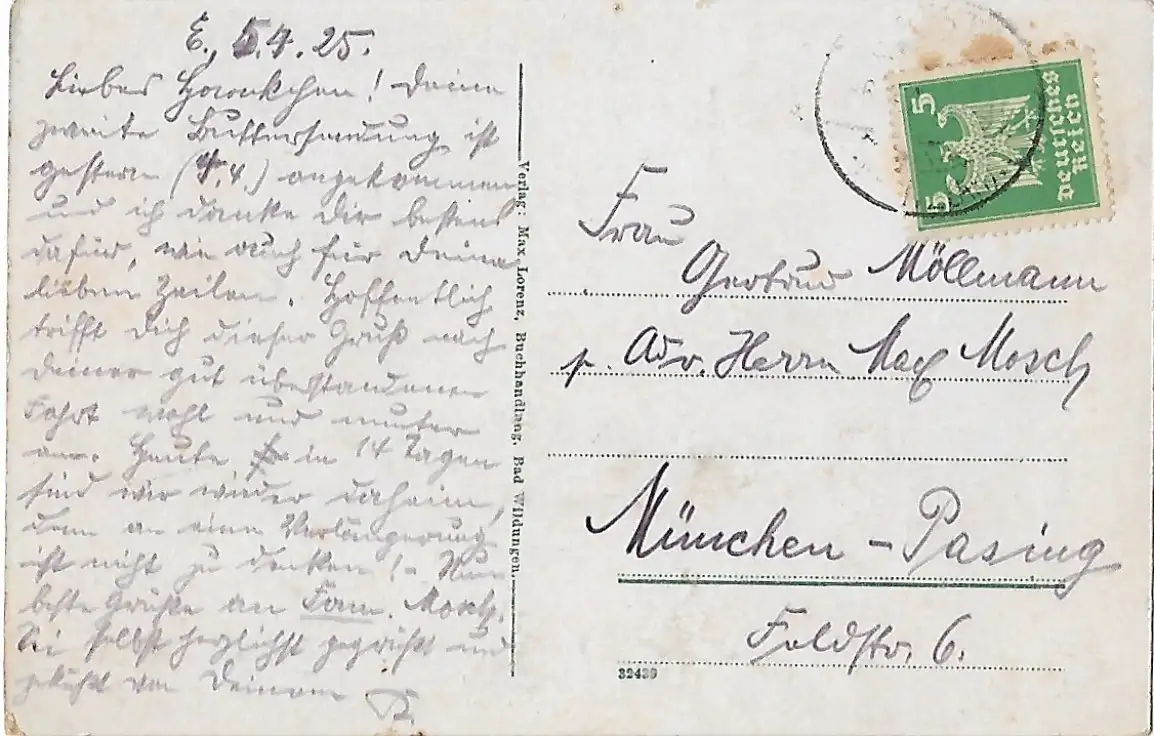 E., 5.4.25.
Liebes Frauchen! Deine
zweite Buttersendung ist
gestern (4.4.) angekommen
und ich danke Dir bestens
dafür, wie auch für Deine
lieben Zeilen. Hoffentlich
trifft Dich dieser Gruß nach
Deiner gut überstandenen
Fahrt wohl und munter
an. Heute in 14 Tagen
sind wir wieder daheim,
denn an eine Verlängerung
ist nicht zu denken! - Nun
beste Grüße an Fam. Mosch.
Sei selbst herzlichst gegrüßt und
geküßt von Deinem
Verlag: Max Lorenz, Buchhandlung, Bad Wildungen.
5
5
Deutsches
Reich
Frau
Gertrud Möllmann
p. Adr. Herrn Max Mosch
München - Pasing
Feldstr. 6.
32439